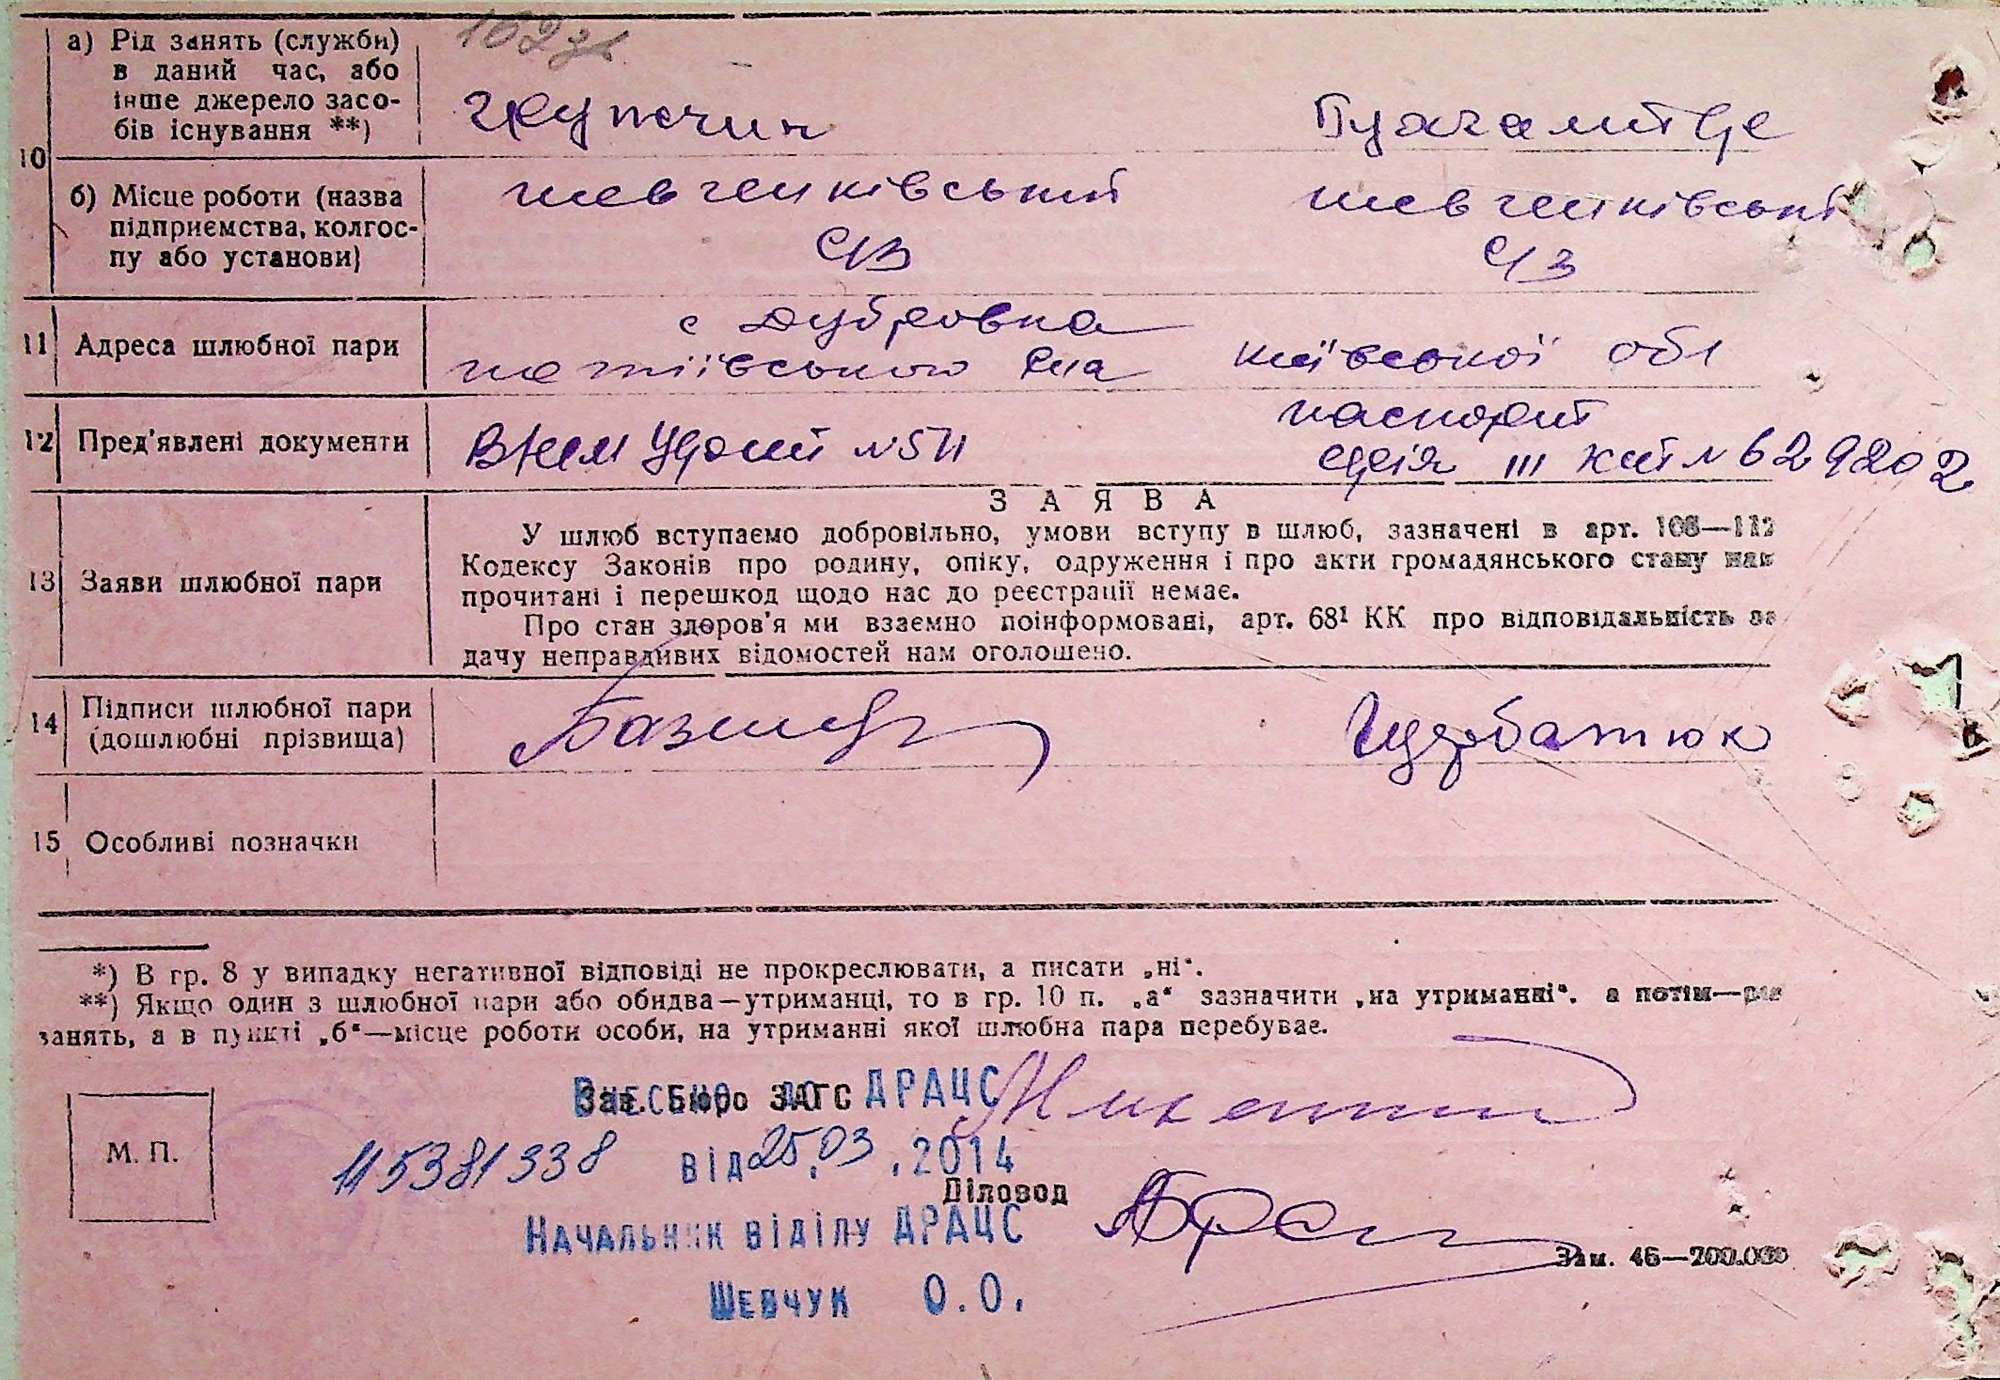 102зв.
10
а) Рід занять (служби)
в даний час, або
інше джерело засо-
бів існування **)
б) Місце роботи (назва
підприємства, колгос-
пу або установи)
шевченківський
шевченківські
11 Адреса шлюбної пари
с Дубровка
потіївського р-на київської обл
12 Пред'явлені документи
паспорт
серія III № 629202
З А Я В А
13 Заяви шлюбної пари
У шлюб вступаємо добровільно, умови вступу в шлюб, зазначені в арт. 108—112
Кодексу Законів про родину, опіку, одруження і про акти громадянського стану нам
прочитані і перешкод щодо нас до реєстрації немає.
Про стан здоров'я ми взаємно поінформовані, арт. 68¹ КК про відповідальність за
дачу неправдивих відомостей нам оголошено.
14 Підписи шлюбної пари
(дошлюбні прізвища)
Щербатюк
15 Особливі позначки
*) В гр. 8 у випадку негативної відповіді не прокреслювати, а писати „ні“.
**) Якщо один з шлюбної пари або обидва—утриманці, то в гр. 10 п. „а“ зазначити „на утриманні“, а потім—рід
занять, а в пункті „б“—місце роботи особи, на утриманні якої шлюбна пара перебуває.
Зав. Бюро ЗАГС
Внесено до ДРАЦС
М. П.
115381338 від 25.03.2014
Діловод
Начальник відділу ДРАЦС
Зам. 46—200.000
Шевчук О.О.